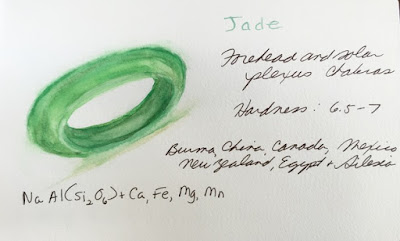 Jade
Forehead and solar
plexus Chakras
Hardness: 6.5-7
Burma, China, Canada, Mexico
New Zealand, Egypt + Silesia
Na Al(Si₂O₆) + Ca, Fe, Mg, Mn